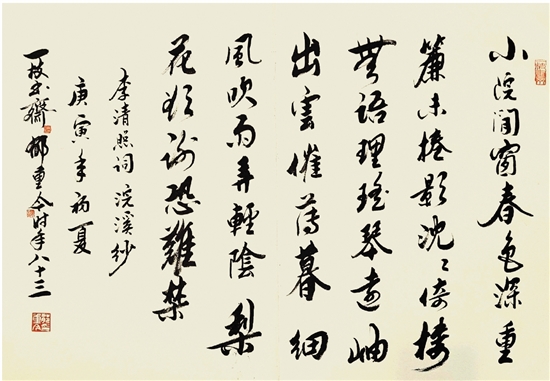 小院閒窗春色深重
簾未捲影沈〻倚樓
無語理瑤琴遠岫
出雲催薄暮細
風吹雨弄輕陰梨
花欲謝恐難禁
李清照詞浣溪紗
庚寅年初夏
一枝書齋郁重今时年八十三